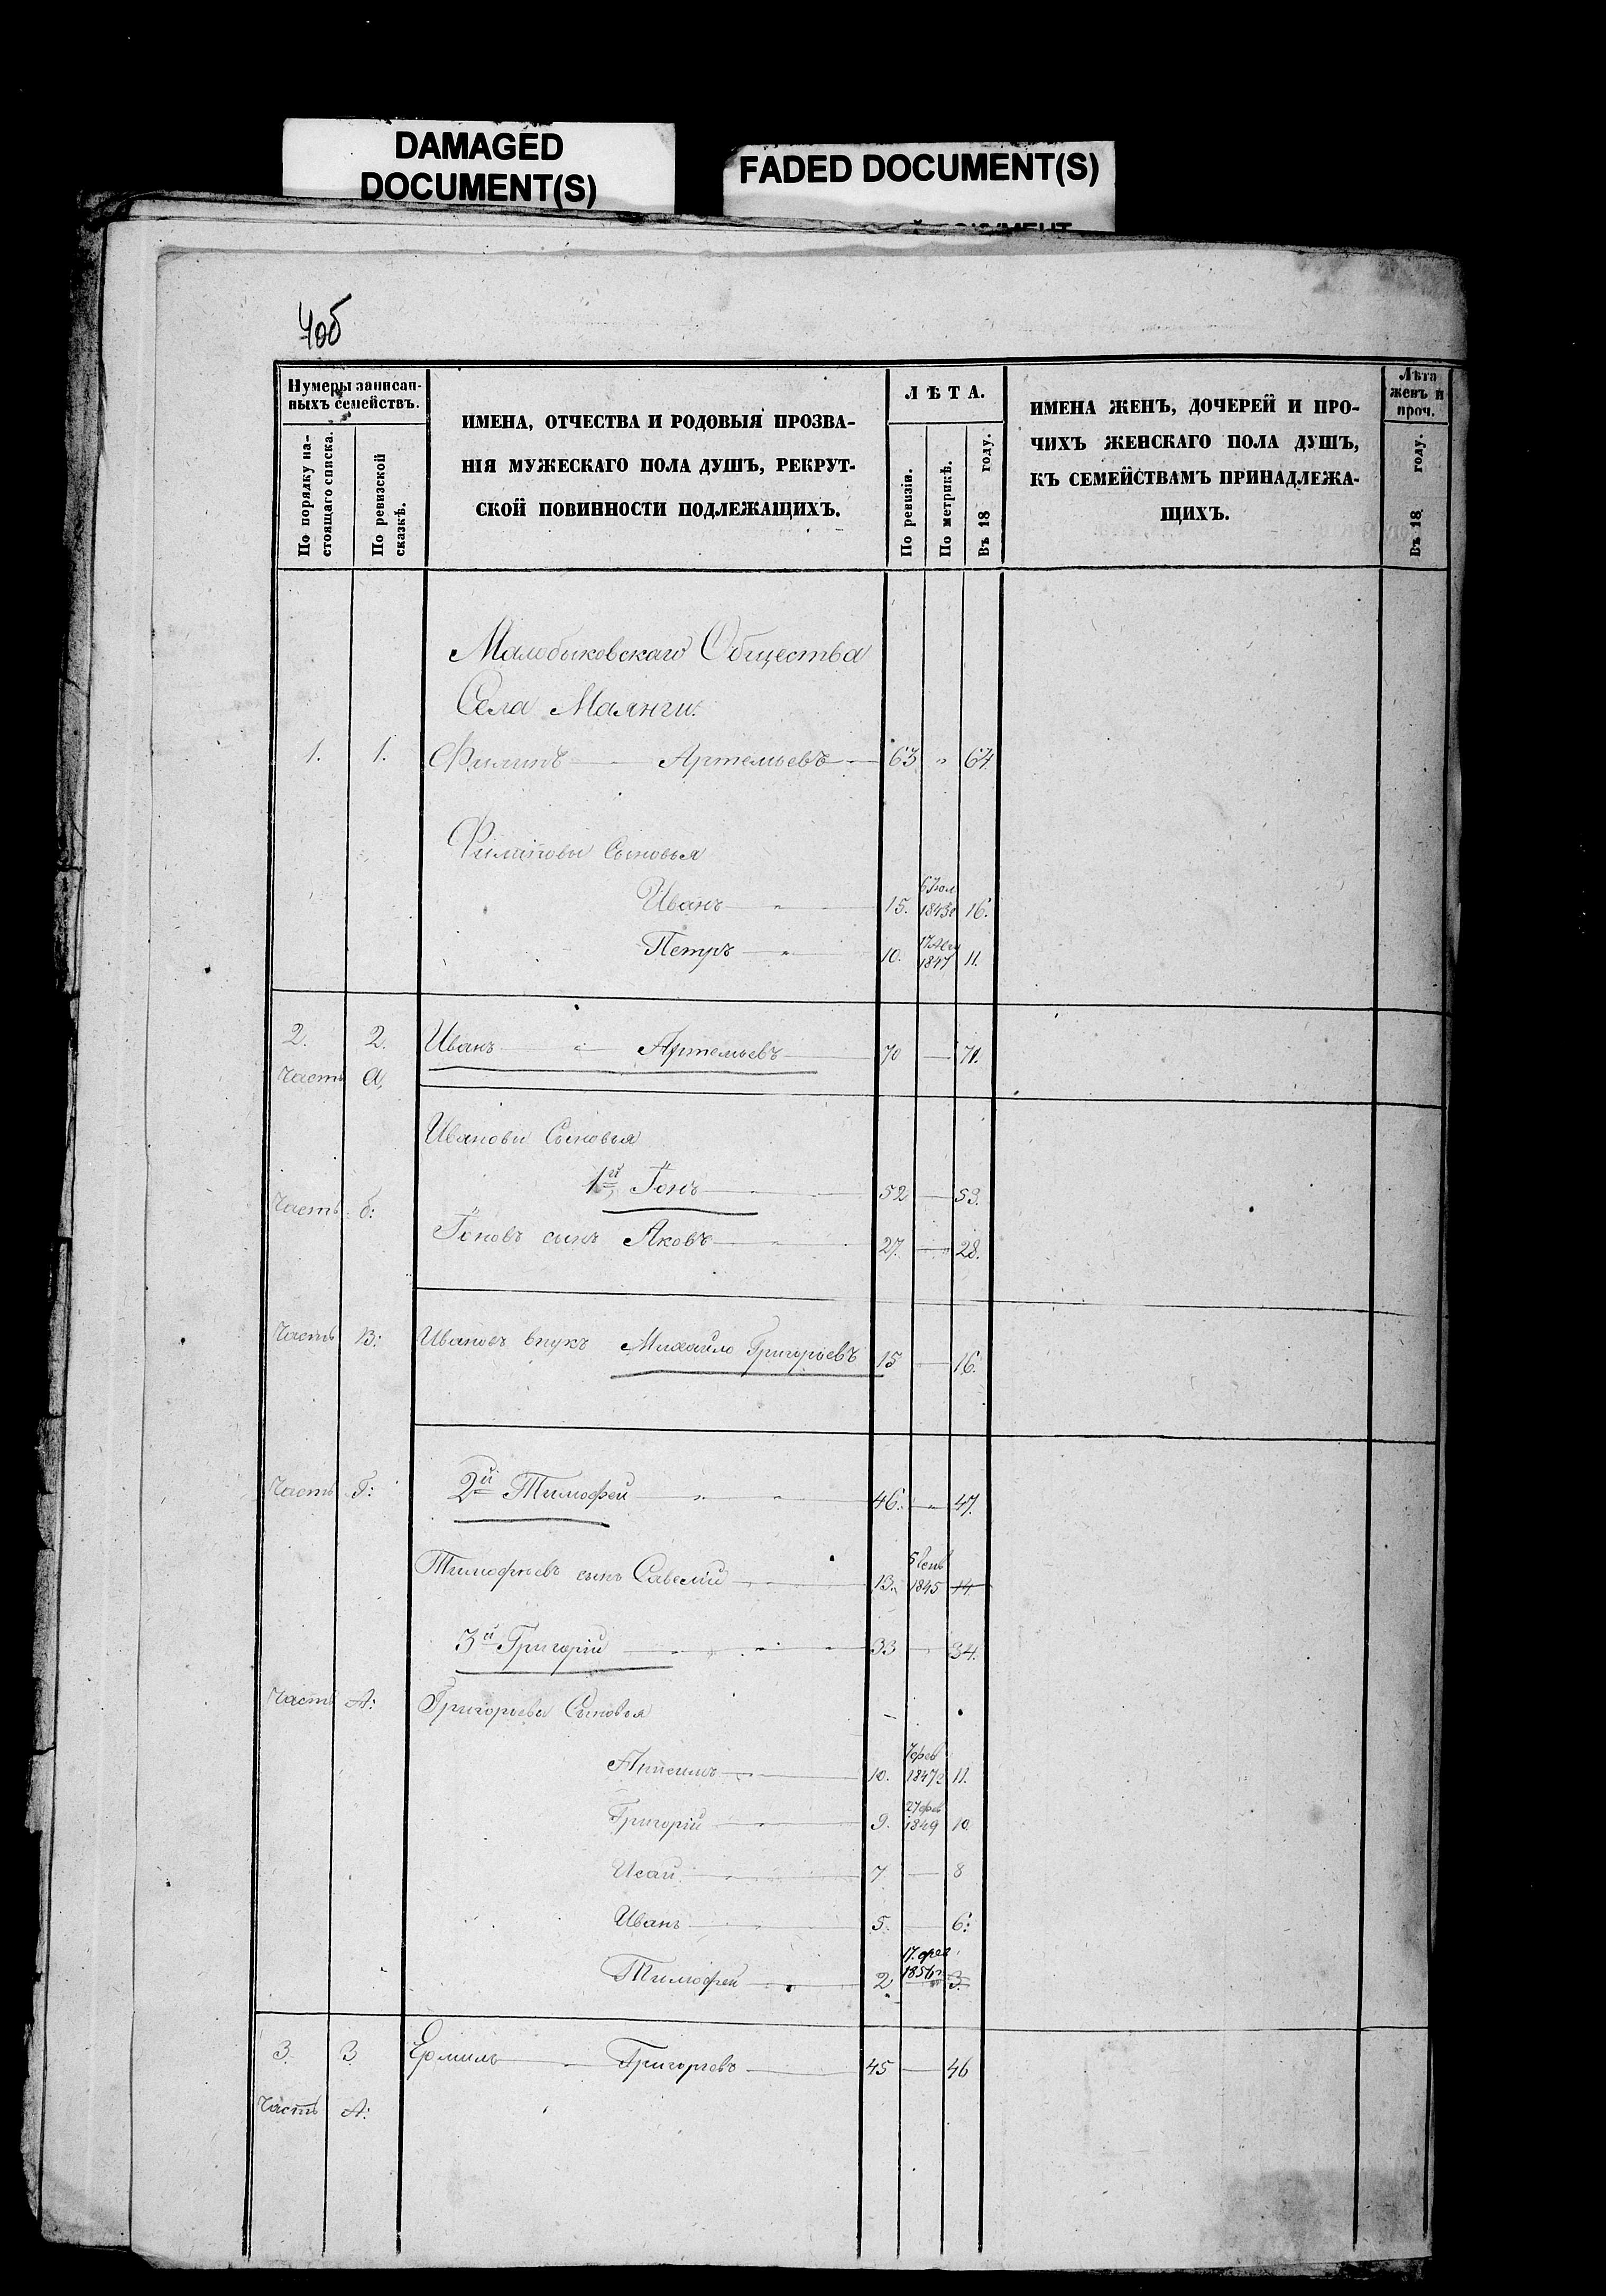 DAMAGED
DOCUMENT(S)
FADED DOCUMENT(S)
Нумеры записан-
ныхъ семействъ.
По порядку на-
стоящаго списка.
По ревизской
сказкѣ.
ИМЕНА, ОТЧЕСТВА И РОДОВЫЯ ПРОЗВА-
НІЯ МУЖЕСКАГО ПОЛА ДУШЪ, РЕКРУТ-
СКОЙ ПОВИННОСТИ ПОДЛЕЖАЩИХЪ.
ЛѢТА.
По ревизіи.
По метрикѣ.
Въ 18 году.
ИМЕНА ЖЕНЪ, ДОЧЕРЕЙ И ПРО-
ЧИХЪ ЖЕНСКАГО ПОЛА ДУШЪ,
КЪ СЕМЕЙСТВАМЪ ПРИНАДЛЕЖА-
ЩИХЪ.
Лѣта
женъ и
проч.
Въ 18 году.
Малобыковскаго Общества
Села Маянги.
1. 1. Филипъ Артемьевъ 63 " 64
Филиповы Сыновья
Иванъ 15. 1843 16.
Петръ 10. 1847 11.
2. 2. Иванъ Артемьевъ 70 71.
Часть А.
Ивановы Сыновья
1й Іонъ 52 53.
Часть б:
Іоновъ сынъ Яковъ 27. 28.
Часть В: Ивановъ внукъ Михайло Григорьевъ 15 16.
Часть Г: 2й Тимофей 46. 47.
Тимофѣевъ сынъ Савелий 13. 1845 14
3й Григорій 33 34.
Часть Д: Григорьевы Сыновья
Анисимъ 10. 7 фев 1847 11.
Григорій 9. 27 фев 1849 10
Исай 7 8
Иванъ 5. 6.
Тимофей 2. 17. фев 1856 3.
3. 3 Ермилъ Григорьевъ 45 46
Часть А: